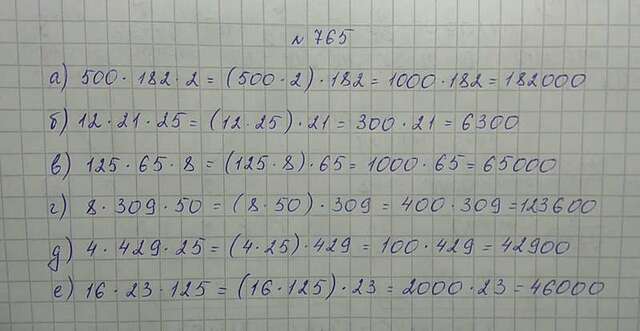 № 765
а) 500 · 182 · 2 = (500 · 2) · 182 = 1000 · 182 = 182000
б) 12 · 21 · 25 = (12 · 25) · 21 = 300 · 21 = 6300
в) 125 · 65 · 8 = (125 · 8) · 65 = 1000 · 65 = 65000
г) 8 · 309 · 50 = (8 · 50) · 309 = 400 · 309 = 123600
д) 4 · 429 · 25 = (4 · 25) · 429 = 100 · 429 = 42900
е) 16 · 23 · 125 = (16 · 125) · 23 = 2000 · 23 = 46000